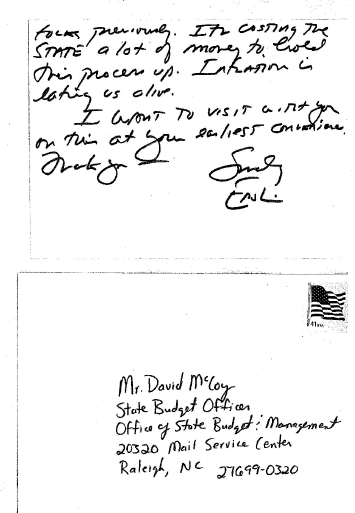 focus previously. Its costing the
STATE a lot of money to hold
this process up. Inflation is
eating us alive.
I WANT TO VISIT with you
on this at your earliest convenience.
Thank you —
Mr. David McCoy
State Budget Officer
Office of State Budget & Management
20320 Mail Service Center
Raleigh, NC 27699-0320